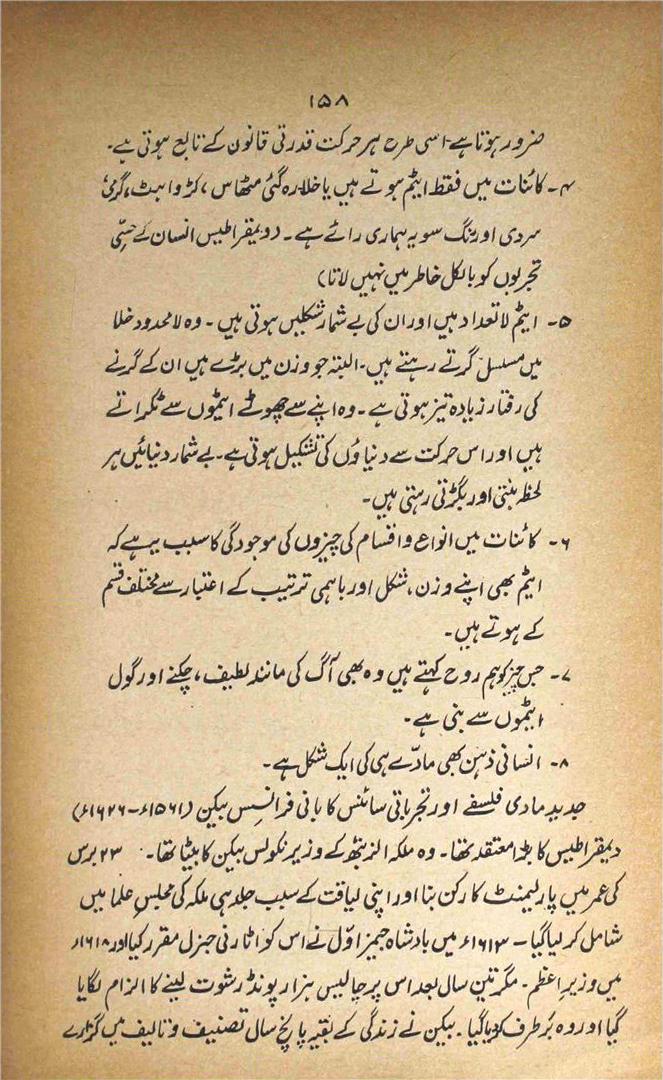 ۱۵۸
ضرور ہوتا ہے۔ اسی طرح ہر حرکت قدرتی قانون کے تابع ہوتی ہے۔
۴۔ کائنات میں فقط ایٹم ہوتے ہیں یا خلا رہ گئی مٹھاس، کڑواہٹ، گرمی
سردی اور رنگ سو یہ ہماری رائے ہے۔ (دیمقراطیس انسان کے حسّی
تجربوں کو بالکل خاطر میں نہیں لاتا)
۵۔ ایٹم لاتعداد ہیں اور ان کی بے شمار شکلیں ہوتی ہیں۔ وہ لامحدود خلا
میں مسلسل گرتے رہتے ہیں۔ البتہ جو وزن میں بڑے ہیں ان کے گرنے
کی رفتار زیادہ تیز ہوتی ہے۔ وہ اپنے سے چھوٹے ایٹموں سے ٹکراتے
ہیں اور اس حرکت سے دنیاؤں کی تشکیل ہوتی ہے۔ بے شمار دنیائیں ہر
لحظہ بنتی اور بگڑتی رہتی ہیں۔
۶۔ کائنات میں انواع و اقسام کی چیزوں کی موجودگی کا سبب یہ ہے کہ
ایٹم بھی اپنے وزن، شکل اور باہمی ترتیب کے اعتبار سے مختلف قسم
کے ہوتے ہیں۔
۷۔ جس چیز کو ہم روح کہتے ہیں وہ بھی آگ کی مانند لطیف، چکنے اور گول
ایٹموں سے بنی ہے۔
۸۔ انسانی ذہن بھی مادّے ہی کی ایک شکل ہے۔
جدید مادی فلسفے اور تجرباتی سائنس کا بانی فرانسس بیکن (۱۵۶۱ء۔۱۶۲۶ء)
دیمقراطیس کا بڑا معتقد تھا۔ وہ ملکہ الزبتھ کے وزیر نکولس بیکن کا بیٹا تھا۔ ۲۳ برس
کی عمر میں پارلیمنٹ کا رکن بنا اور اپنی لیاقت کے سبب جلد ہی ملکہ کی مجلسِ علما میں
شامل کر لیا گیا۔ ۱۶۱۳ء میں بادشاہ جیمز اوّل نے اس کو اٹارنی جنرل مقرر کیا اور ۱۶۱۸ء
میں وزیرِ اعظم۔ مگر تین سال بعد اس پر چالیس ہزار پونڈ رشوت لینے کا الزام لگایا
گیا اور وہ برطرف کر دیا گیا۔ بیکن نے زندگی کے بقیہ پانچ سال تصنیف و تالیف میں گزارے